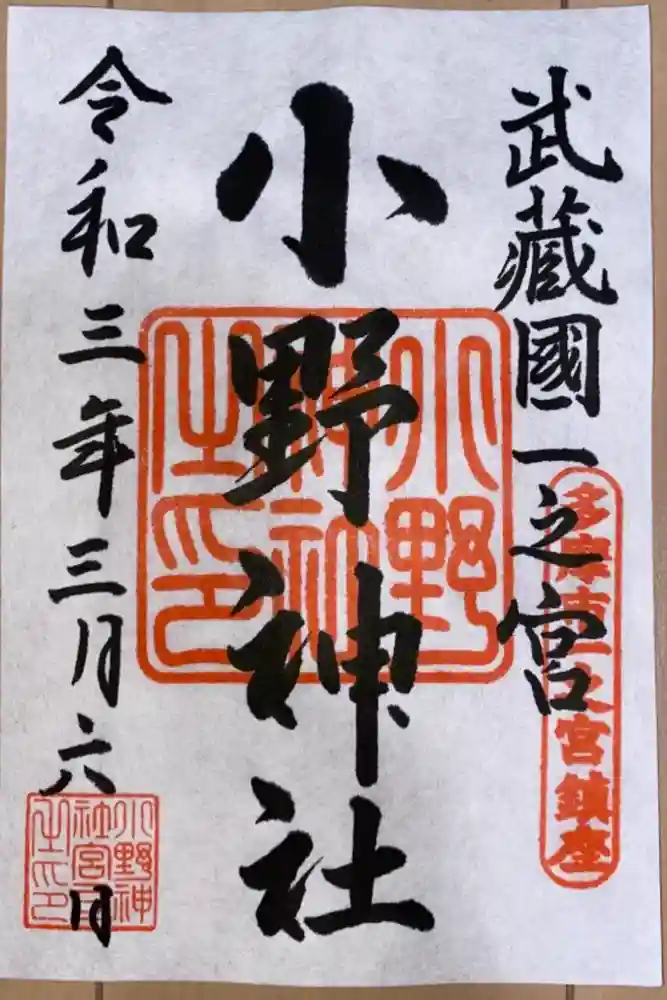 武藏國一之宮
多摩市一之宮鎮座
小野神社
小野神社之印
令和三年三月六日
小野神社宮司之印